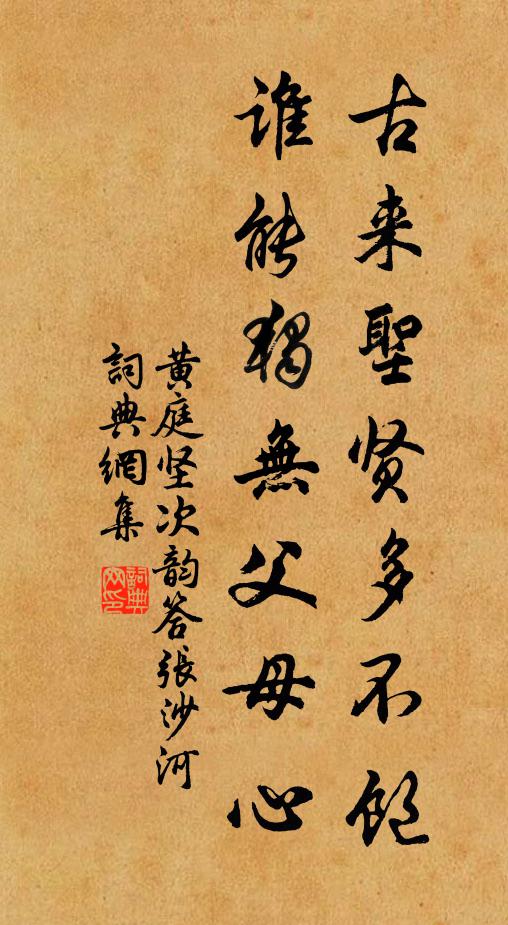 古来聖贤多不飽
谁能獨無父母心
黄庭坚次韵答張沙河
詞典網集
詞典网印